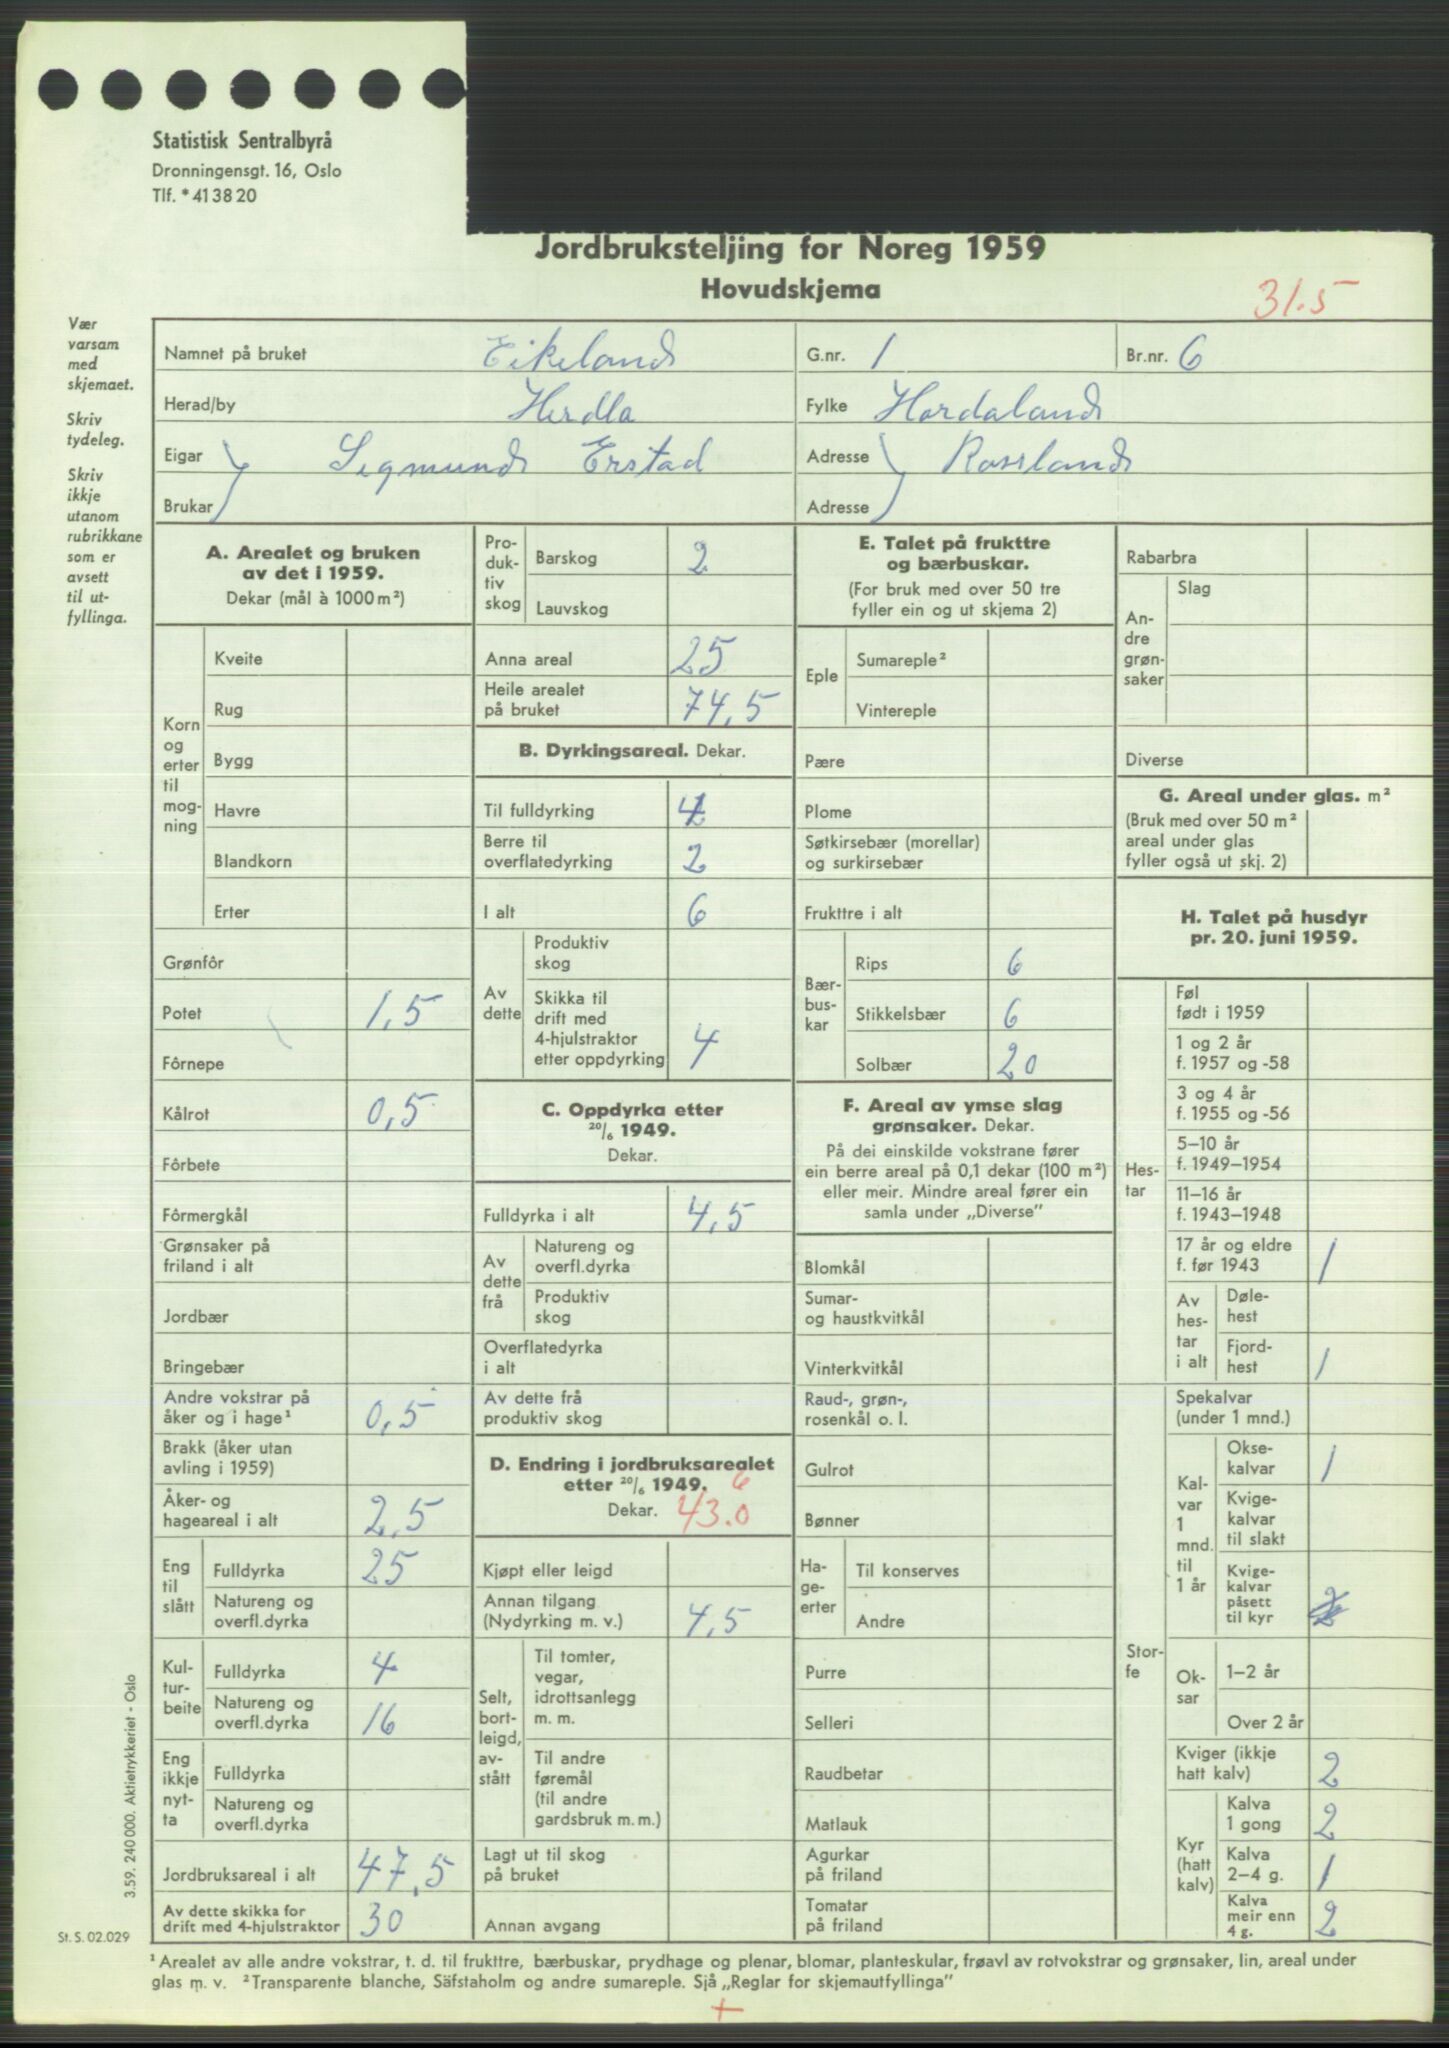 Statistisk Sentralbyrå
Dronningensgt. 16, Oslo
Tlf. *41 38 20
Jordbruksteljing for Noreg 1959
Hovudskjema
31.5
Vær
varsam
med
skjemaet.
Skriv
tydeleg.
Skriv
ikkje
utanom
rubrikkane
som er
avsett
til ut-
fyllinga.
Namnet på bruket Eikeland G.nr. 1 Br.nr. 6
Herad/by Herdla Fylke Hordaland
Eigar Sigmund Erstad Adresse Rossland
Brukar Adresse
A. Arealet og bruken
av det i 1959.
Dekar (mål à 1000 m²)
Korn
og
erter
til
mog-
ning
Kveite
Rug
Bygg
Havre
Blandkorn
Erter
Grønfôr
Potet 1,5
Fôrnepe
Kålrot 0,5
Fôrbete
Fôrmergkål
Grønsaker på
friland i alt
Jordbær
Bringebær
Andre vokstrar på
åker og i hage¹ 0,5
Brakk (åker utan
avling i 1959)
Åker- og
hageareal i alt 2,5
Eng
til
slått
Fulldyrka 25
Natureng og
overfl.dyrka
Kul-
tur-
beite
Fulldyrka 4
Natureng og
overfl.dyrka 16
Eng
ikkje
nyt-
ta
Fulldyrka
Natureng og
overfl.dyrka
Jordbruksareal i alt 47,5
Av dette skikka for
drift med 4-hjulstraktor 30
Pro-
duk-
tiv
skog
Barskog 2
Lauvskog
Anna areal 25
Heile arealet
på bruket 74,5
B. Dyrkingsareal. Dekar.
Til fulldyrking 4
Berre til
overflatedyrking 2
I alt 6
Av
dette
Produktiv
skog
Skikka til
drift med
4-hjulstraktor
etter oppdyrking 4
C. Oppdyrka etter
20/6 1949.
Dekar.
Fulldyrka i alt 4,5
Av
dette
frå
Natureng og
overfl.dyrka
Produktiv
skog
Overflatedyrka
i alt
Av dette frå
produktiv skog
D. Endring i jordbruksarealet
etter 20/6 1949. 6
Dekar. 43.0
Kjøpt eller leigd
Annan tilgang
(Nydyrking m. v.) 4,5
Selt,
bort-
leigd,
av-
stått
Til tomter,
vegar,
idrottsanlegg
m. m.
Til andre
føremål
(til andre
gardsbruk m. m.)
Lagt ut til skog
på bruket
Annan avgang
E. Talet på frukttre
og bærbuskar.
(For bruk med over 50 tre
fyller ein og ut skjema 2)
Eple
Sumareple²
Vintereple
Pære
Plome
Søtkirsebær (morellar)
og surkirsebær
Frukttre i alt
Bær-
bus-
kar
Rips 6
Stikkelsbær 6
Solbær 20
F. Areal av ymse slag
grønsaker. Dekar.
På dei einskilde vokstrane fører
ein berre areal på 0,1 dekar (100 m²)
eller meir. Mindre areal fører ein
samla under „Diverse”
Blomkål
Sumar-
og haustkvitkål
Vinterkvitkål
Raud-, grøn-,
rosenkål o. l.
Gulrot
Bønner
Ha-
ge-
erter
Til konserves
Andre
Purre
Selleri
Raudbetar
Matlauk
Agurkar
på friland
Tomatar
på friland
Rabarbra
An-
dre
grøn-
saker
Slag
Diverse
G. Areal under glas. m²
(Bruk med over 50 m²
areal under glas
fyller også ut skj. 2)
H. Talet på husdyr
pr. 20. juni 1959.
Hes-
tar
Føl
født i 1959
1 og 2 år
f. 1957 og -58
3 og 4 år
f. 1955 og -56
5–10 år
f. 1949–1954
11–16 år
f. 1943–1948
17 år og eldre
f. før 1943 1
Av
hes-
tar
i alt
Døle-
hest
Fjord-
hest 1
Stor-
fe
Spekalvar
(under 1 mnd.)
Kal-
var
1
mnd.
til
1 år
Okse-
kalvar 1
Kvige-
kalvar
til slakt
Kvige-
kalvar
påsett
til kyr
Ok-
sar
1–2 år
Over 2 år
Kviger (ikkje
hatt kalv) 2
Kyr
(hatt
kalv)
Kalva
1 gong 2
Kalva
2–4 g. 1
Kalva
meir enn
4 g. 2
3.59. 240 000. Aktietrykkeriet - Oslo
St. S. 02.029
¹ Arealet av alle andre vokstrar, t. d. til frukttre, bærbuskar, prydhage og plenar, blomar, planteskular, frøavl av rotvokstrar og grønsaker, lin, areal under
glas m. v. ² Transparente blanche, Säfstaholm og andre sumareple. Sjå „Reglar for skjemautfyllinga”
+